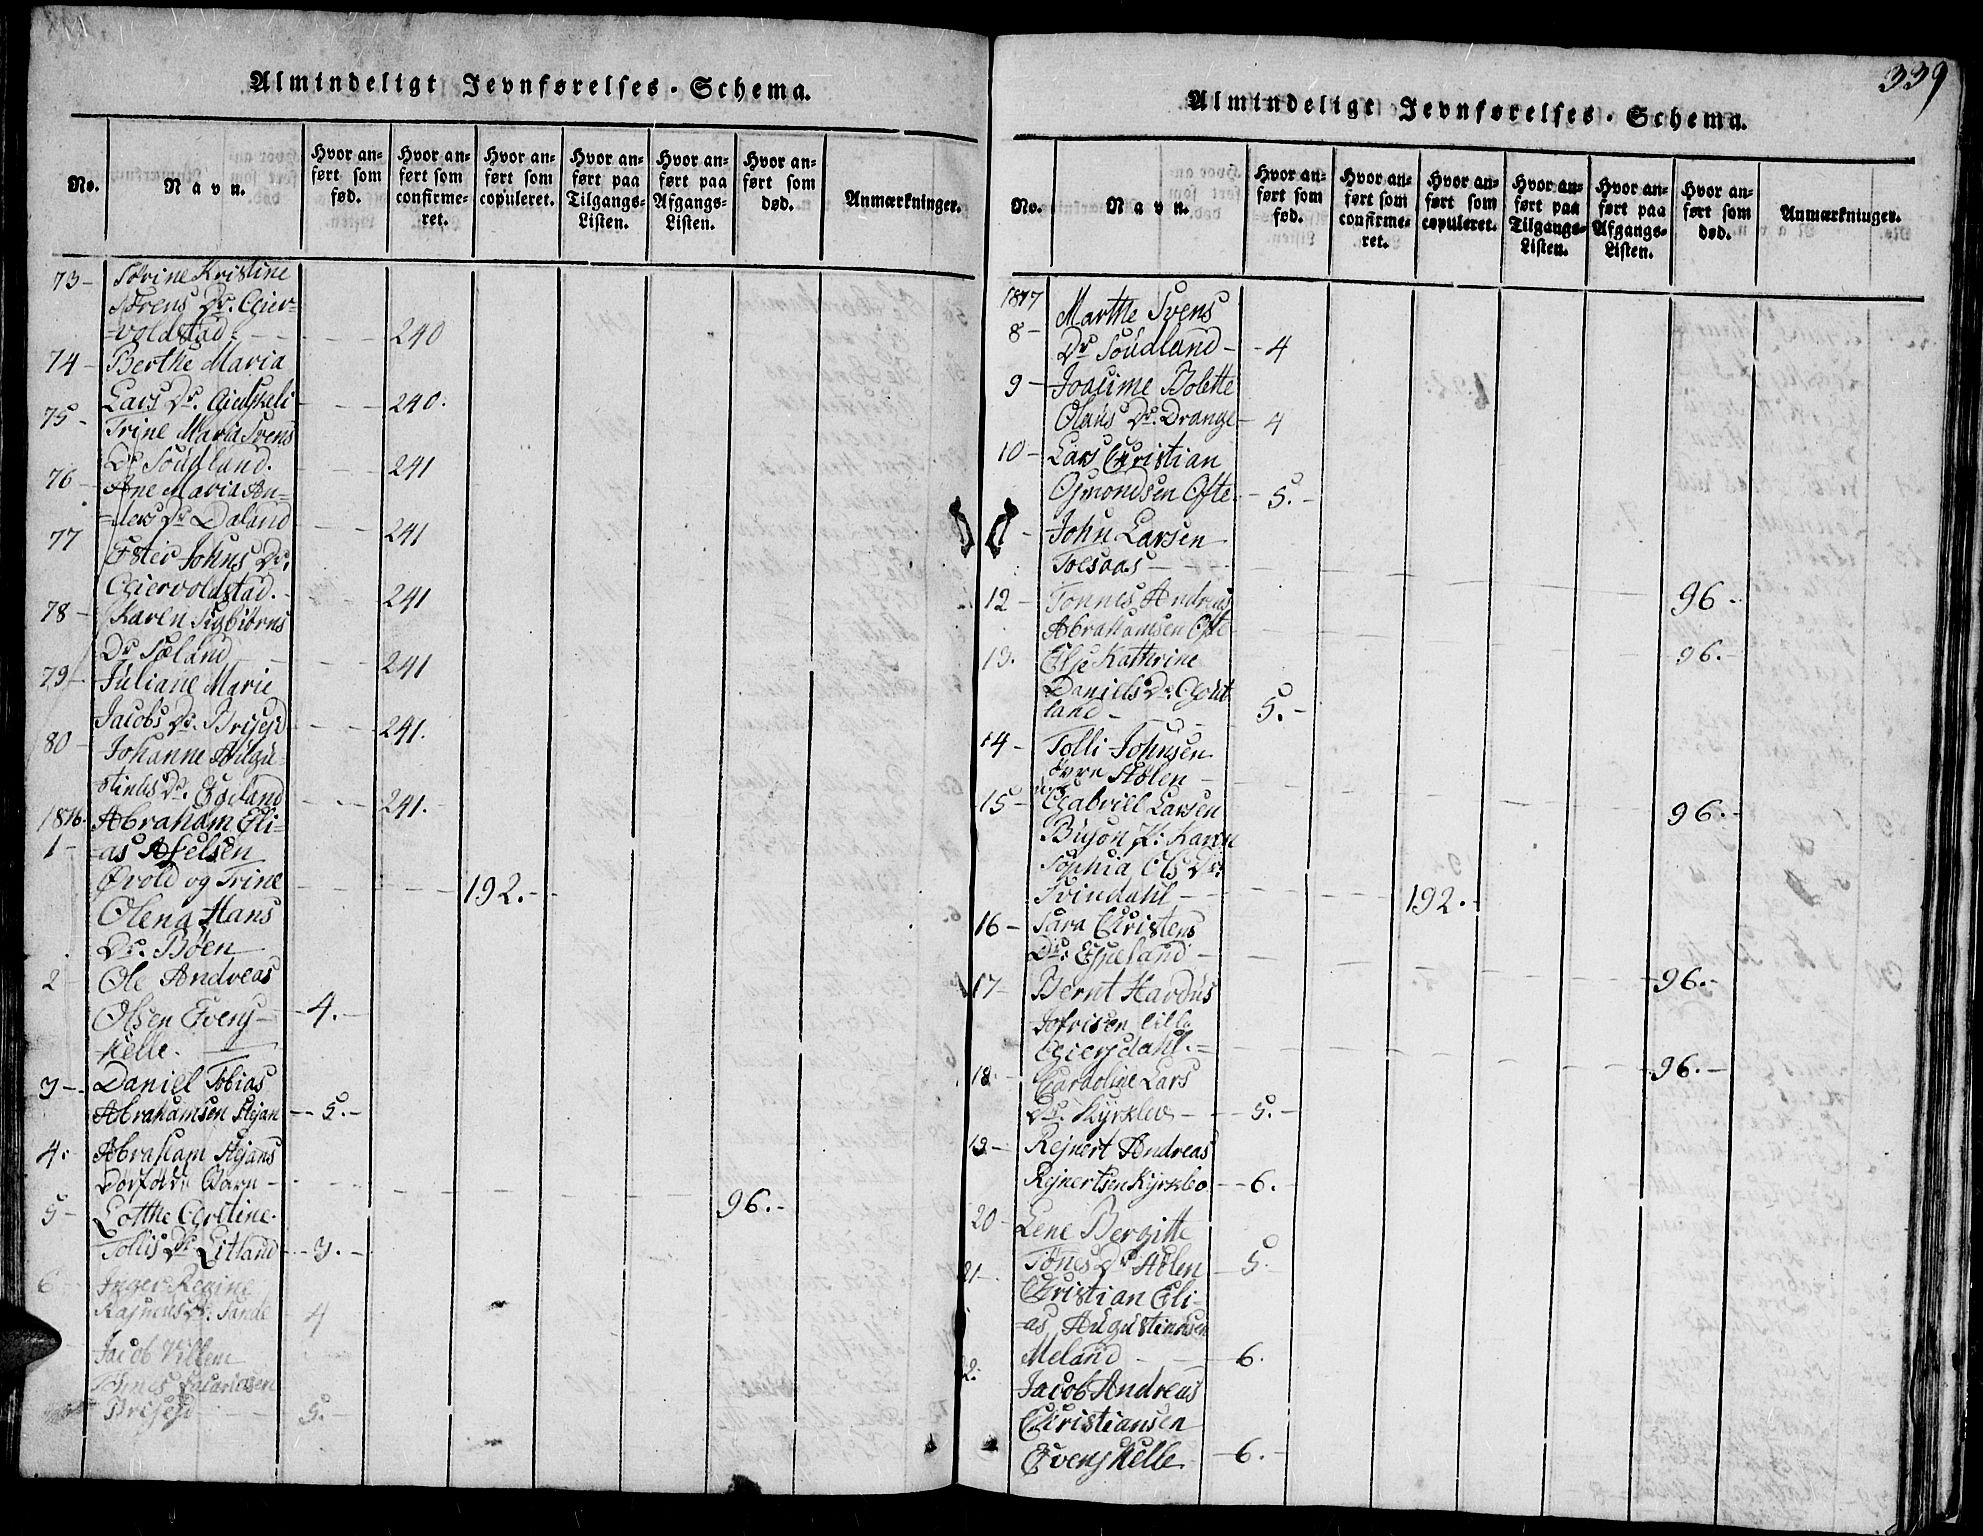 Almindeligt Jevnførelses-Schema.
No.
Navn.
Hvor an-
ført som
fød.
Hvor an-
ført som
confirme-
ret.
Hvor an-
ført som
copuleret.
Hvor an-
ført paa
Tilgangs-
Listen.
Hvor an-
ført paa
Afgangs-
Listen.
Hvor an-
ført som
død.
Anmærkninger.
73- Sørine Kristine
Sørens Dr. Gier-
=voldstad - - - - 240
74- Berthe Maria
Lars Dr. - - - 240.
75- Trine Maria Svens
Dr Soudland. - - 241
76- Ane Maria An-
=ders Dr Daland - - 241
77 Ester Johns Dr.
Giervoldstad. - - 241
78- Karen Sigbiørns
Dr Sæland - - 241
79- Juliane Marie
Jacobs Dr. Briseid - - 241.
80- Johanne Augu-
stinus Dr. Egeland - - 241.
1816. Abraham Eli-
1- as Axelsen
Øvold og Trine - - - - 192.-
Olena Hans
Dr. Böen
2- Ole Andreas
Olsen Evens- - 4. -
kelle.
3- Daniel Tobias
Abrahamsen Stejan -- 5.-
4. Abraham Stejans
Dødfødt Barn - - - - 96.-
5- Lotthe Christine
Tollis Dr Litland - 3. -
6- Inger Regine
Rasmus Dr. Sande 4
Jacob Villem
Tønnes Zacariasen
Briseid - - 5.-
339
Almindeligt Jevnførelses-Schema.
No.
Navn.
Hvor an-
ført som
fød.
Hvor an-
ført som
confirme-
ret.
Hvor an-
ført som
copuleret.
Hvor an-
ført paa
Tilgangs-
Listen.
Hvor an-
ført paa
Afgangs-
Listen.
Hvor an-
ført som
død.
Anmærkninger.
1817 Marthe Svens
8- Dr Soudland - - 4
9- Joacime Bolette
Olaus Dr. Drange - 4
10- Lars Christian
Osmondsen Ofte - 5. -
- John Larsen
Tolsaas - - - 96 -
12- Tonnes Andreas
Abrahamsen Ofte - - 96.-
13. Else Kathrine
Daniels Dr.
land - 5. -
14- Tolli Johnsen
övre Stölen - - 96.-
15- Gabriell Larsen
Karen
Sophia Ols Dr.
Svindahl - - - 192. -
16- Sara Christens
Dr. Espeland - - - 96.-
17- Bernt Hardus
Jofrisen lille
Egiersdahl. - - - 96.-
18. Caroline Lars
Dr. Kyrkleo - - 5. -
19- Rejnert Andreas
Rejnertsen Kyrkleo - 6. -
20- Lene Bergitte
Tønes Dr Stölen - 5. -
21- Christian Eli-
as Augustinusen
Meland - - 6.
2. Jacob Andreas
Christiansen
Evenskelle - 6. -